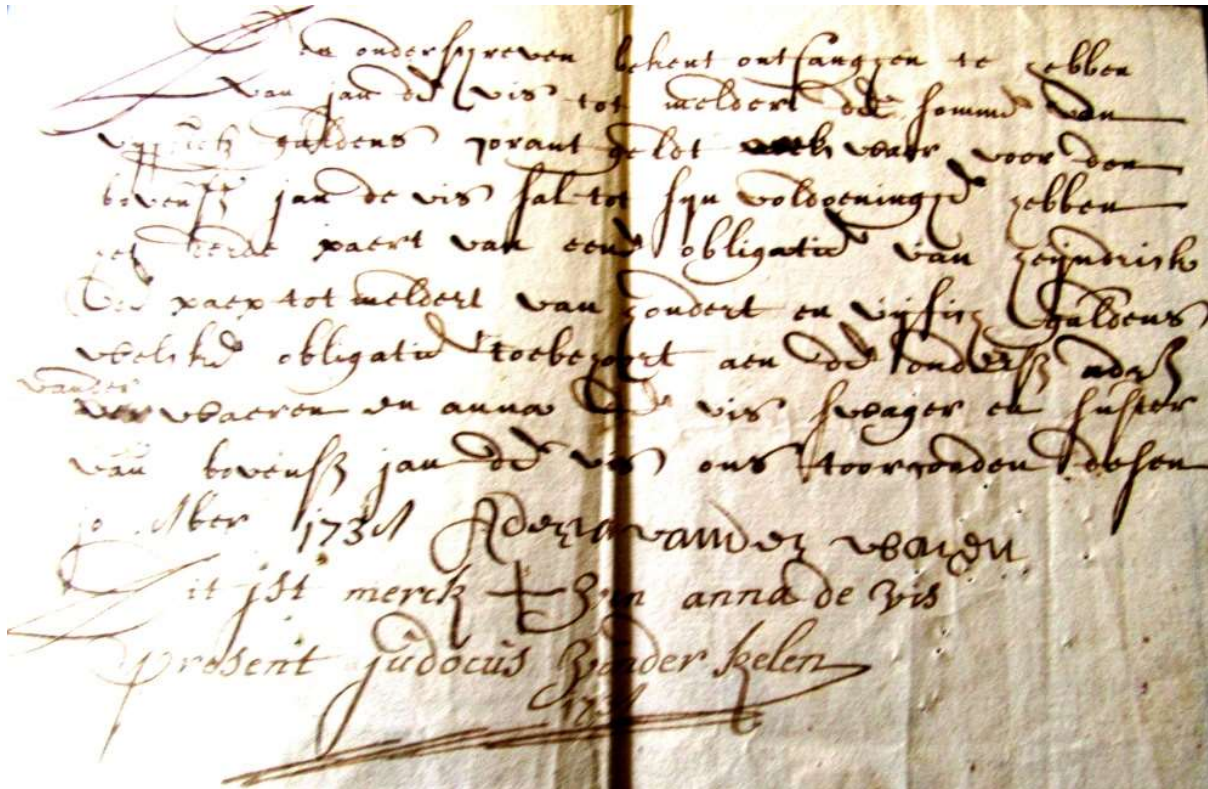 den onderschreven bekent ontfangen te hebben
van jan de vis tot meldert de somme van
vijftich guldens corant geldt waer voor den
bovensz jan de vis sal tot sijn voldoeninge hebben
het derde paert van eene obligatie van heijndrick
de paep tot meldert van hondert en vijftig guldens
welcke obligatie toebehoort aen de ondersz
vander
waeren en anna de vis swager en suster
van bovensz jan de vis ons toorconden desen
10 1731 vander waeren
Dit ist merck + van anna de vis
present judocus vander kelen
1731